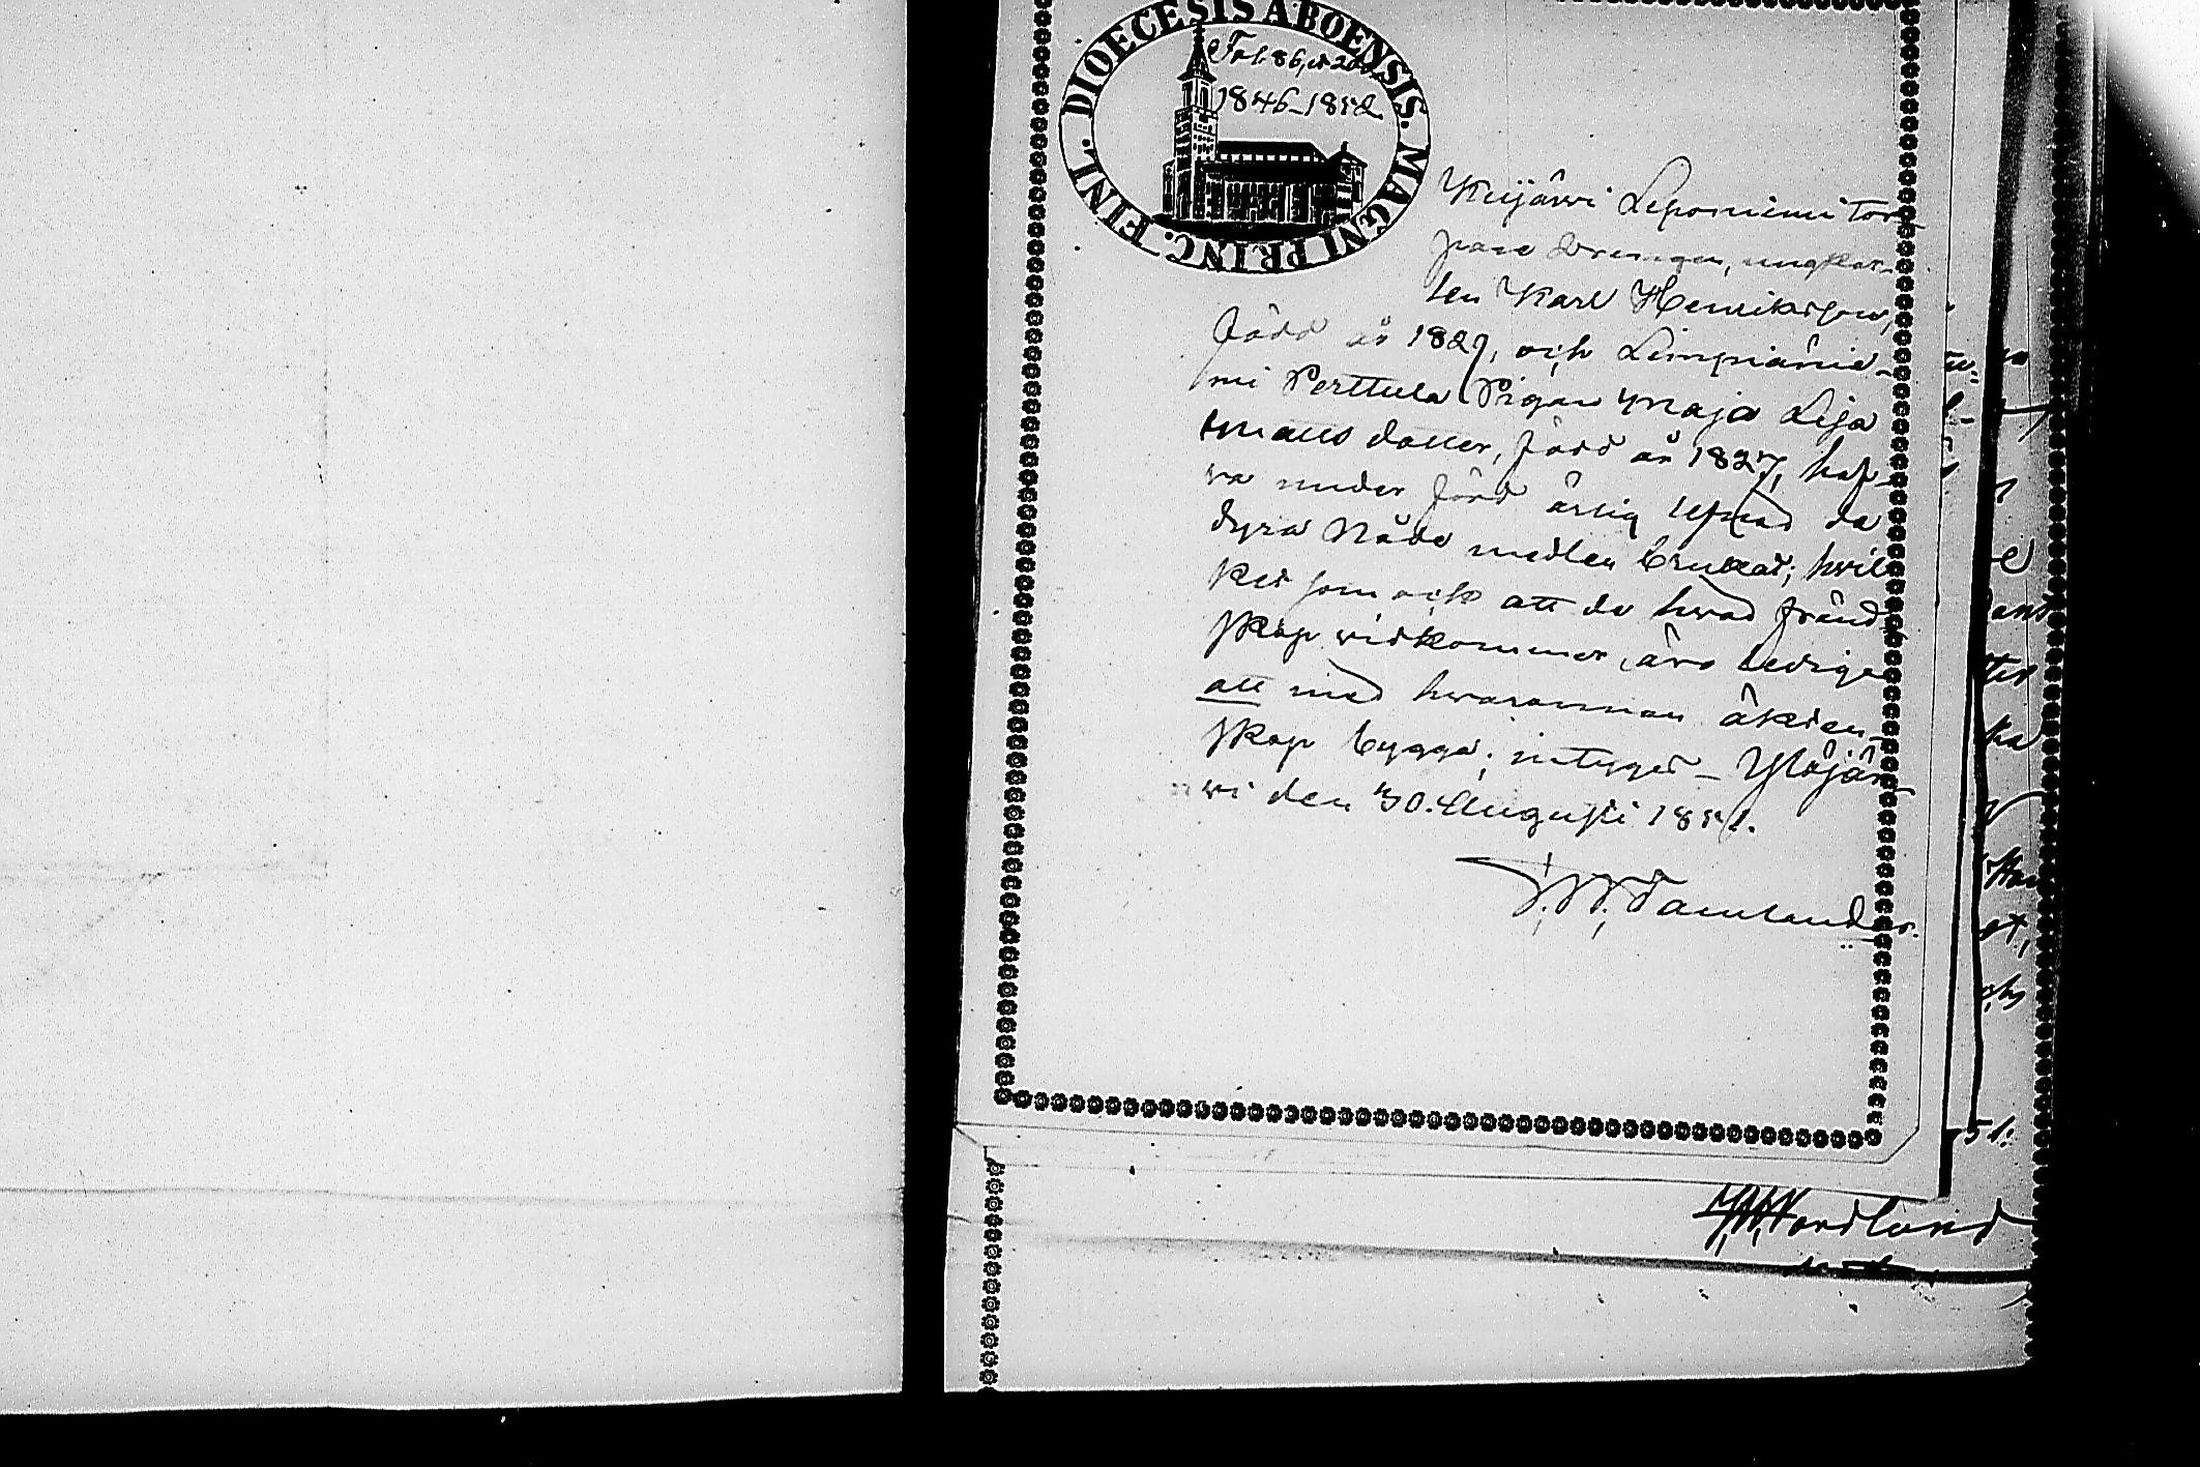 DIOECESIS ABOENSIS. MAGNI PRINC. FINL.
Fol. 86, et 200
1846–1852
Keijärvi Leponiemi Torp
pare Drengen, ungkar-
len Karl Henriksson,
född år 1829, och Limpiänie-
mi Perttula Pigan Maja Lisa
Matts dotter, född år 1827, haf-
va under förd ärlig lefnad de
dyra Nåde medlen brukat; hvil
ket som ock att de hvad fränd
skap vidkommer, äro ledige
att med hvarannan äkten-
skap bygga; intygas – Ylöjär
vi den 30. Augusti 1851.
Tamlander.
51.
Nordlund